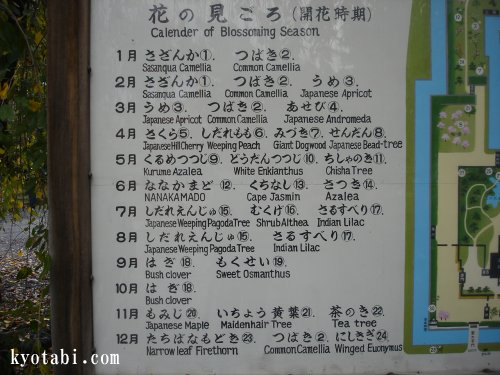 花の見ごろ(開花時期)
Calender of Blossoming Season
1月 さざんか①. つばき②.
Sasanqua Camellia Common Camellia
2月 さざんか①. つばき②. うめ③.
Sasanqua Camellia Common Camellia Japanese Apricot
3月 うめ③. つばき②. あせび④.
Japanese Apricot Common Camellia Japanese Andromeda
4月 さくら⑤. しだれもも⑥. みづき⑦. せんだん⑧.
Japanese Hill Cherry Weeping Peach Giant Dogwood Japanese Bead-tree
5月 くるめつつじ⑨. どうだんつつじ⑩. ちしゃのき⑪.
Kurume Azalea White Enkianthus Chisha Tree
6月 ななかまど⑫. くちなし⑬. さつき⑭.
NANAKAMADO Cape Jasmin Azalea
7月 しだれえんじゅ⑮. むくげ⑯. さるすべり⑰.
Japanese Weeping Pagoda Tree Shrub Althea Indian Lilac
8月 しだれえんじゅ⑮. さるすべり⑰.
Japanese Weeping Pagoda Tree Indian Lilac
9月 はぎ⑱. もくせい⑲.
Bush clover Sweet Osmanthus
10月 はぎ⑱.
Bush clover
11月 もみじ⑳. いちょう黄葉㉑. 茶のき㉒.
Japanese Maple Maidenhair Tree Tea tree
12月 たちばなもどき㉓. つばき②. にしきぎ㉔.
Narrow leaf Firethorn Common Camellia Winged Euonymus
kyotabi.com